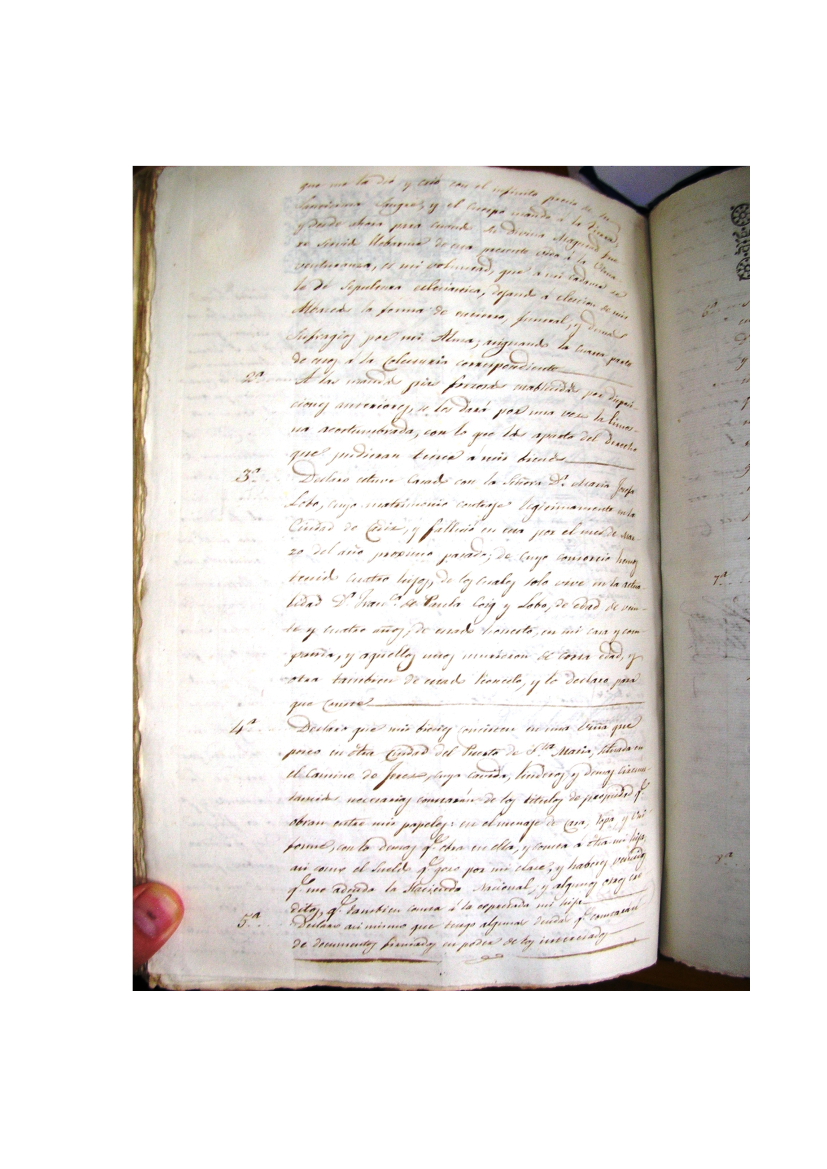 que me la dió y crió con el infinito precio de su
Santisima Sangre, y el Cuerpo mando á la tierra,
y desde ahora para cuando su divina Magestad fue
re servid llebarme de esta presente vida á la Eterna
venturanza, es mi voluntad, que á mi cadaver se
le dé Sepultura eclesiastica, dejando á eleccion de mis
Albaceas la forma de entierro, funeral, y demas
Sufragios por mi Alma; asignando la cuarta parte
de ellos á la Colecturia correspondiente
2ª A las mandas pias forzosas establecidas por disposi-
ciones anteriores, se les dará por una vez la limos-
na acostumbrada, con lo que las aparto del derecho
que pudieran tener a mis bienes
3ª Declaro estuve Casado con la Señora Dª Maria Josefa
Lobo, cuyo matrimonio contraje legitimamente en la
Ciudad de Cadiz, y falleció en esta por el mes de Mar-
zo del año procsimo pasado; de cuyo consorcio hemos
tenido cuatro hijos, de los cuales solo vive en la actua-
lidad Dª Franca de Paula Coig y Lobo, de edad de vein-
te y cuatro años, de estado honesto, en mi casa y com-
pañia, y aquellos otros murieron de corta edad, y
otra tambien de estado honesto, y lo declaro para
que conste
4ª Declaro que mis bienes consisten en una Viña que
poseo en otra Ciudad del Puerto de Sta Maria, situada en
el Camino de Jerez, cuya cavida, linderos, y demas circuns-
tancias necesarias constarán de los titulos de propiedad qe
obran entre mis papeles: en el menaje de Casa, Ropa, y Uni
forme, con lo demas qe obra en ella, y consta á otra mi hija,
asi como el Sueldo qe gozo por mi clase, y haberes vencidos
qe me adeuda la Hacienda Nacional, y algunos otros cre
ditos, qe tambien consta á la espresada mi hija
5ª Declaro asi mismo que tengo algunas deudas qe constarán
de documentos firmados en poder de los interesados
6ª
7ª
8ª